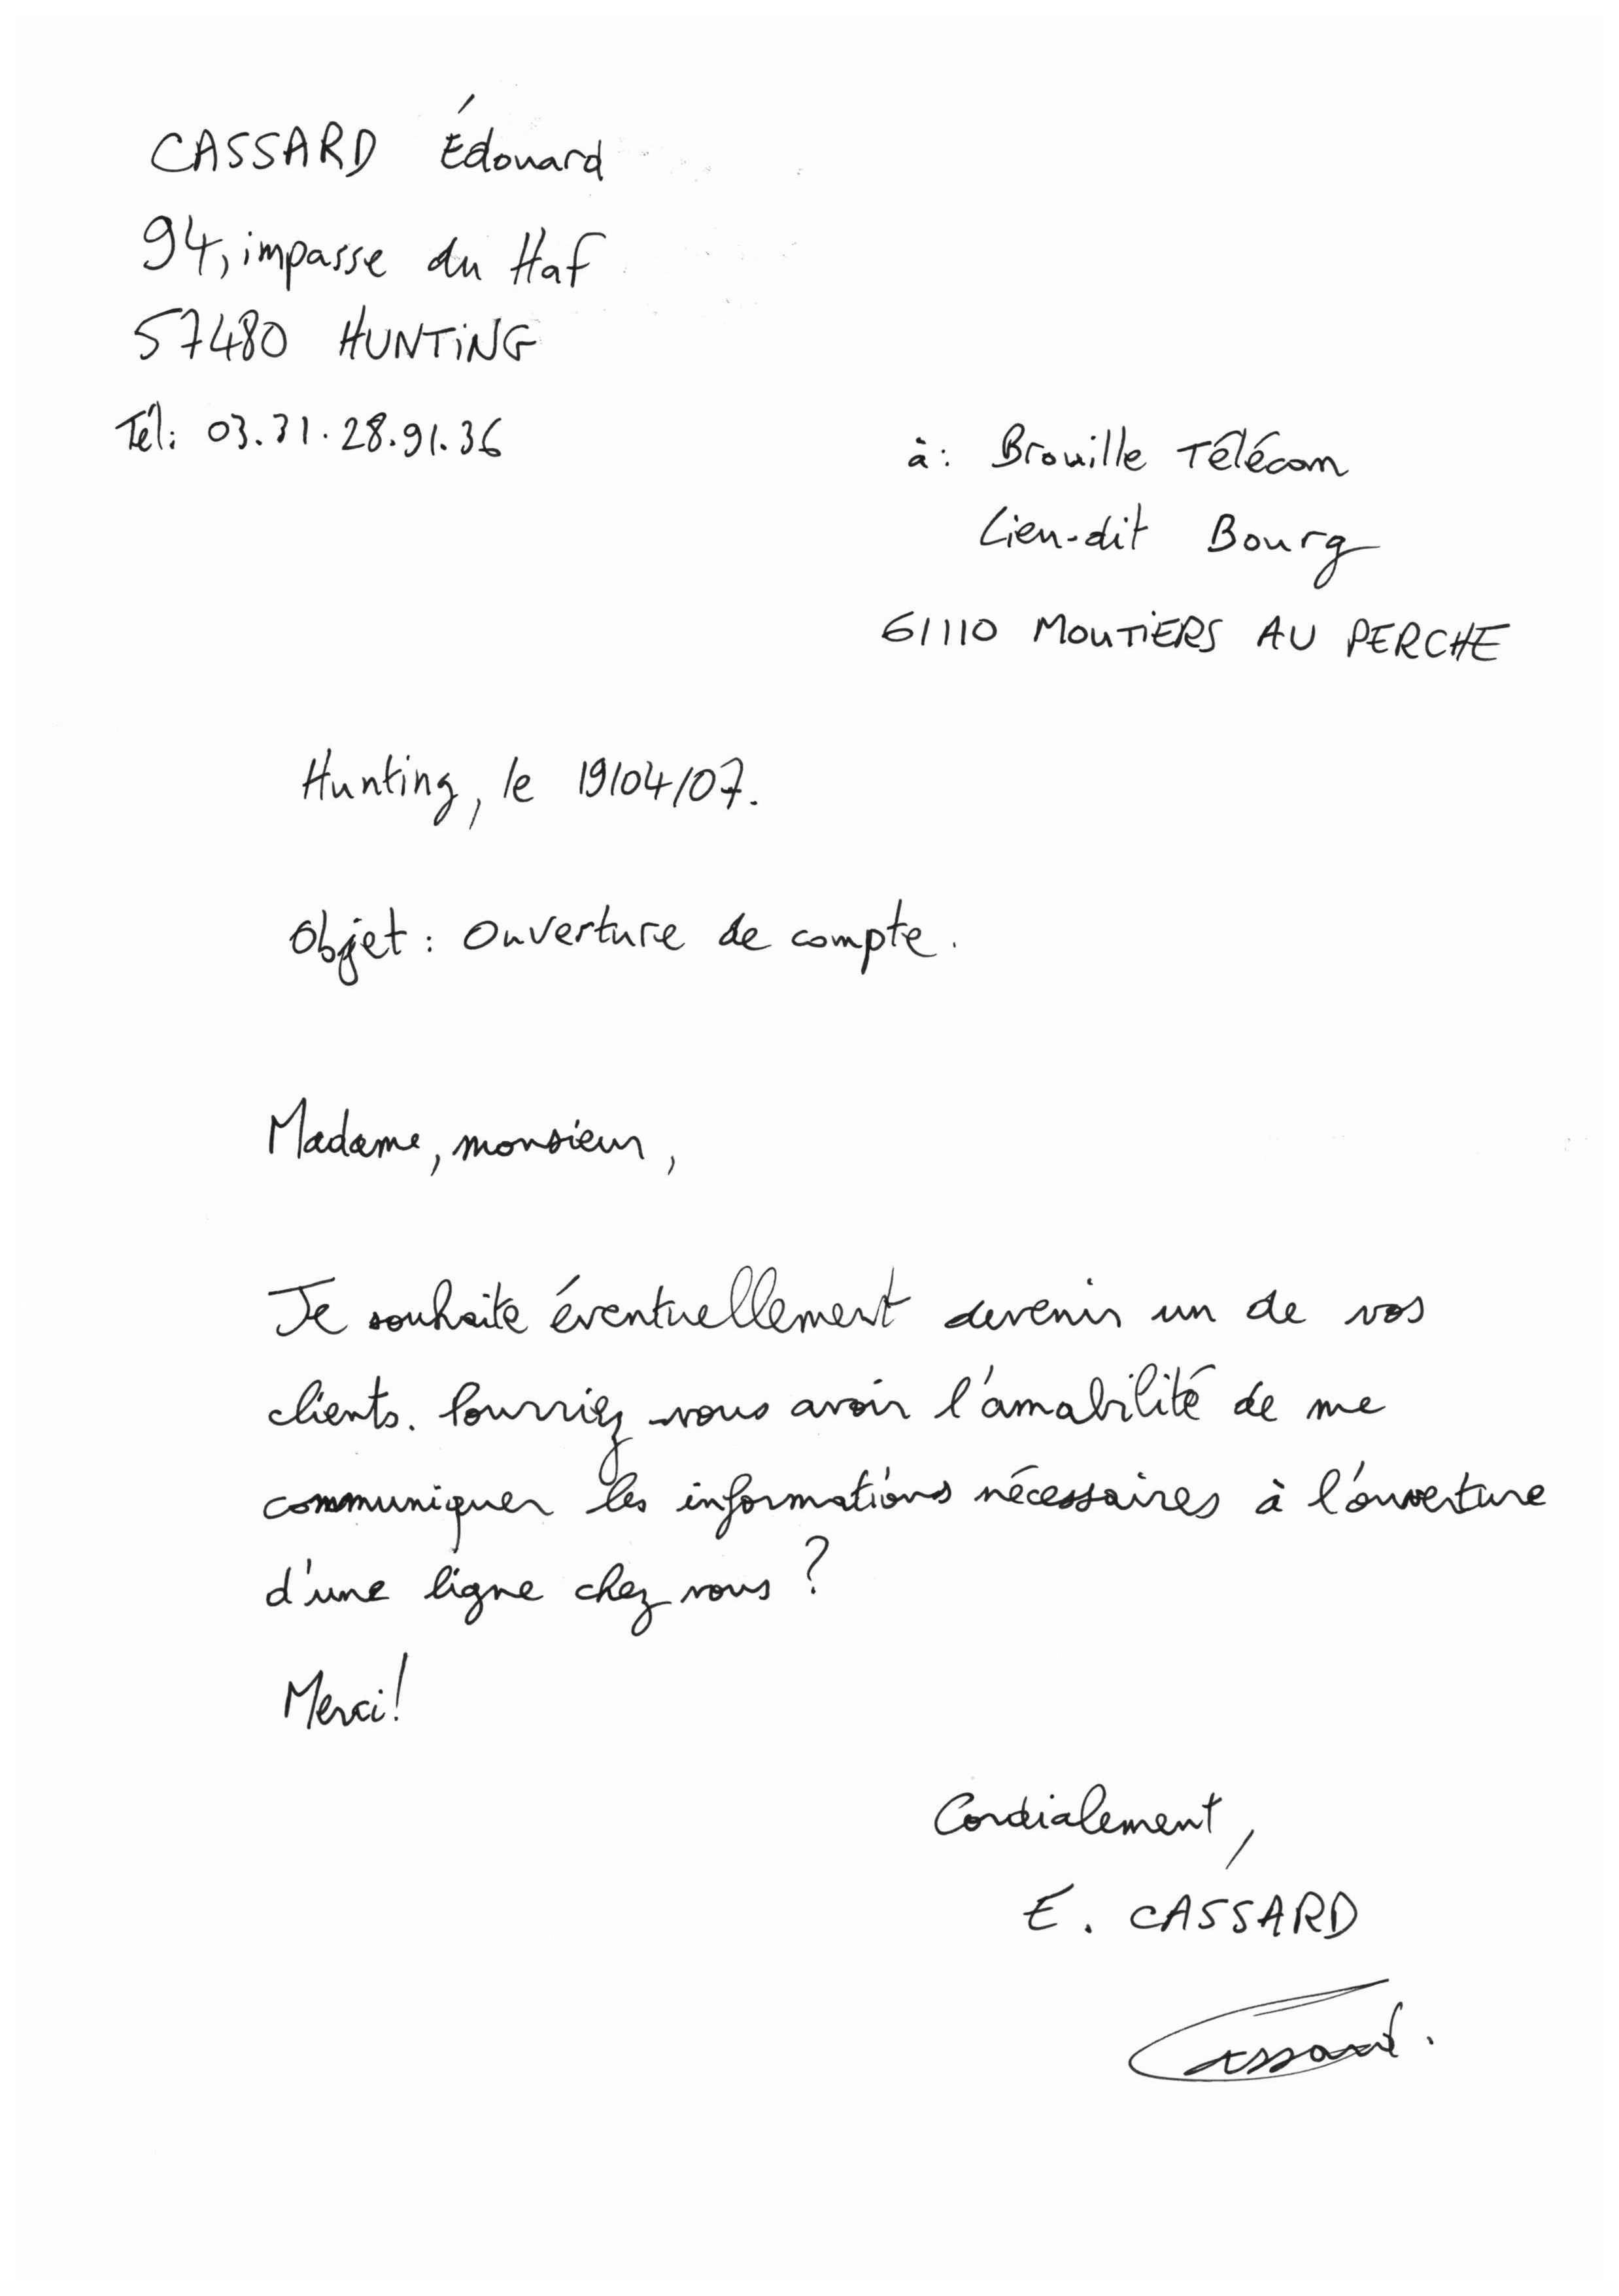 CASSARD Édouard
94, impasse du Haf
57480 HUNTiNG
Tél: 03.31.28.91.36
à: Brouille Télécom
Lieu-dit Bourg
61110 MOUTiERS AU PERCHE
Hunting, le 19/04/07.
Objet : Ouverture de compte.
Madame, monsieur,
Je souhaite éventuellement devenir un de vos
clients. Pourriez-vous avoir l'amabilité de me
communiquer les informations nécessaires à l'ouverture
d'une ligne chez vous ?
Merci!
Cordialement,
E. CASSARD
Cassard.